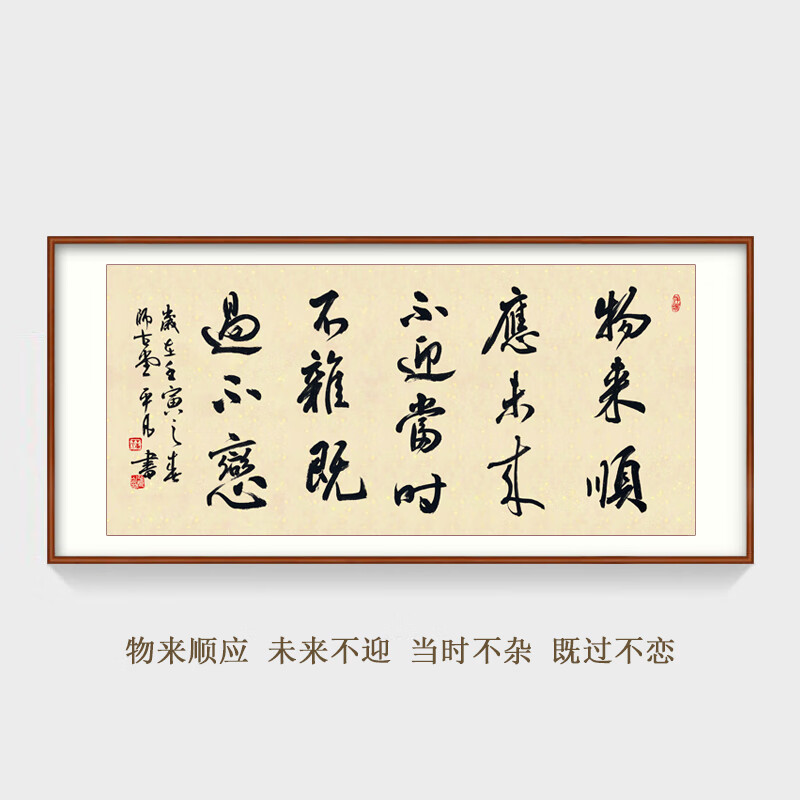 物来順
應未来
不迎當时
不雜既
過不戀
歳在壬寅之春
师古堂平凡書
物来顺应 未来不迎 当时不杂 既过不恋